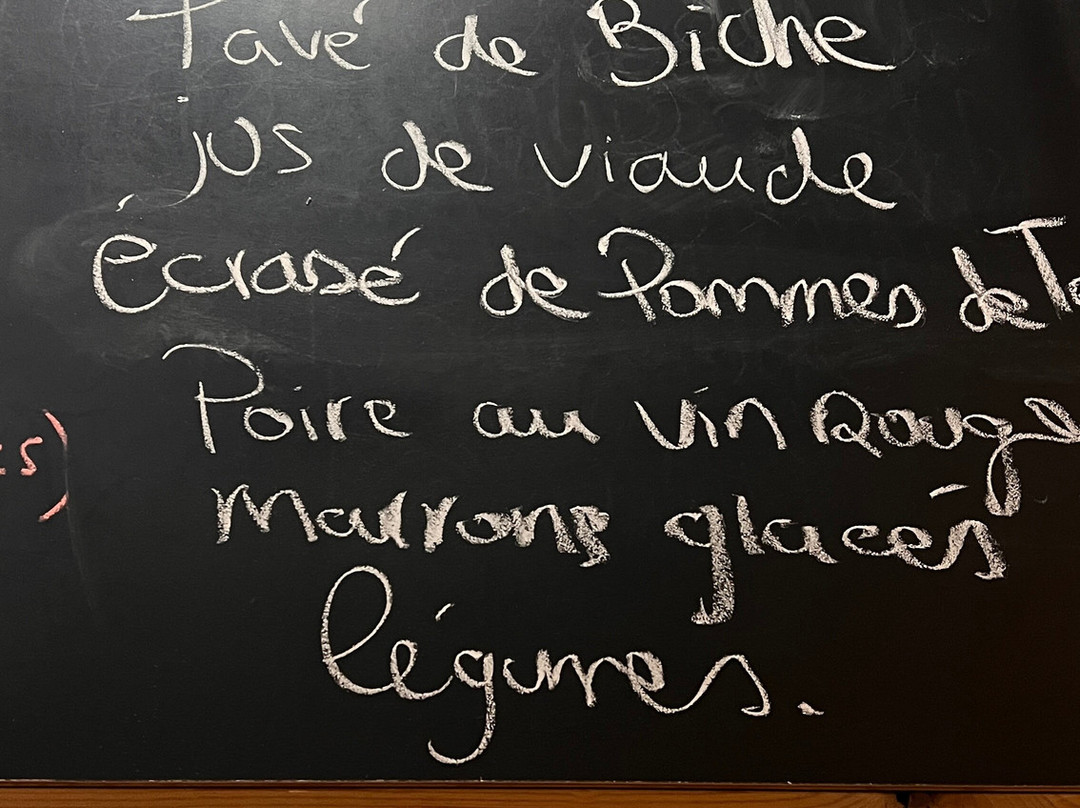 Pavé de Biche
jus de viande
écrasé de Pommes de Te
Poire au vin Rouge
Marrons glacés
légumes.
s)